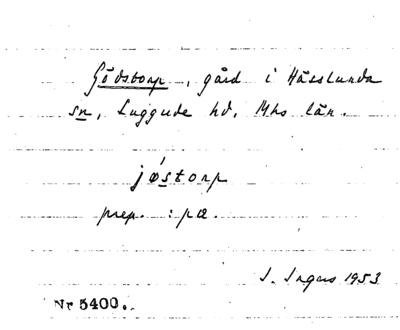 Gödstorp, gård i Hässlunda
sn, Luggude hd, Mhs län.
jøstorp
prep. : pæ.
I. Ingers 1953
Nr 5400.